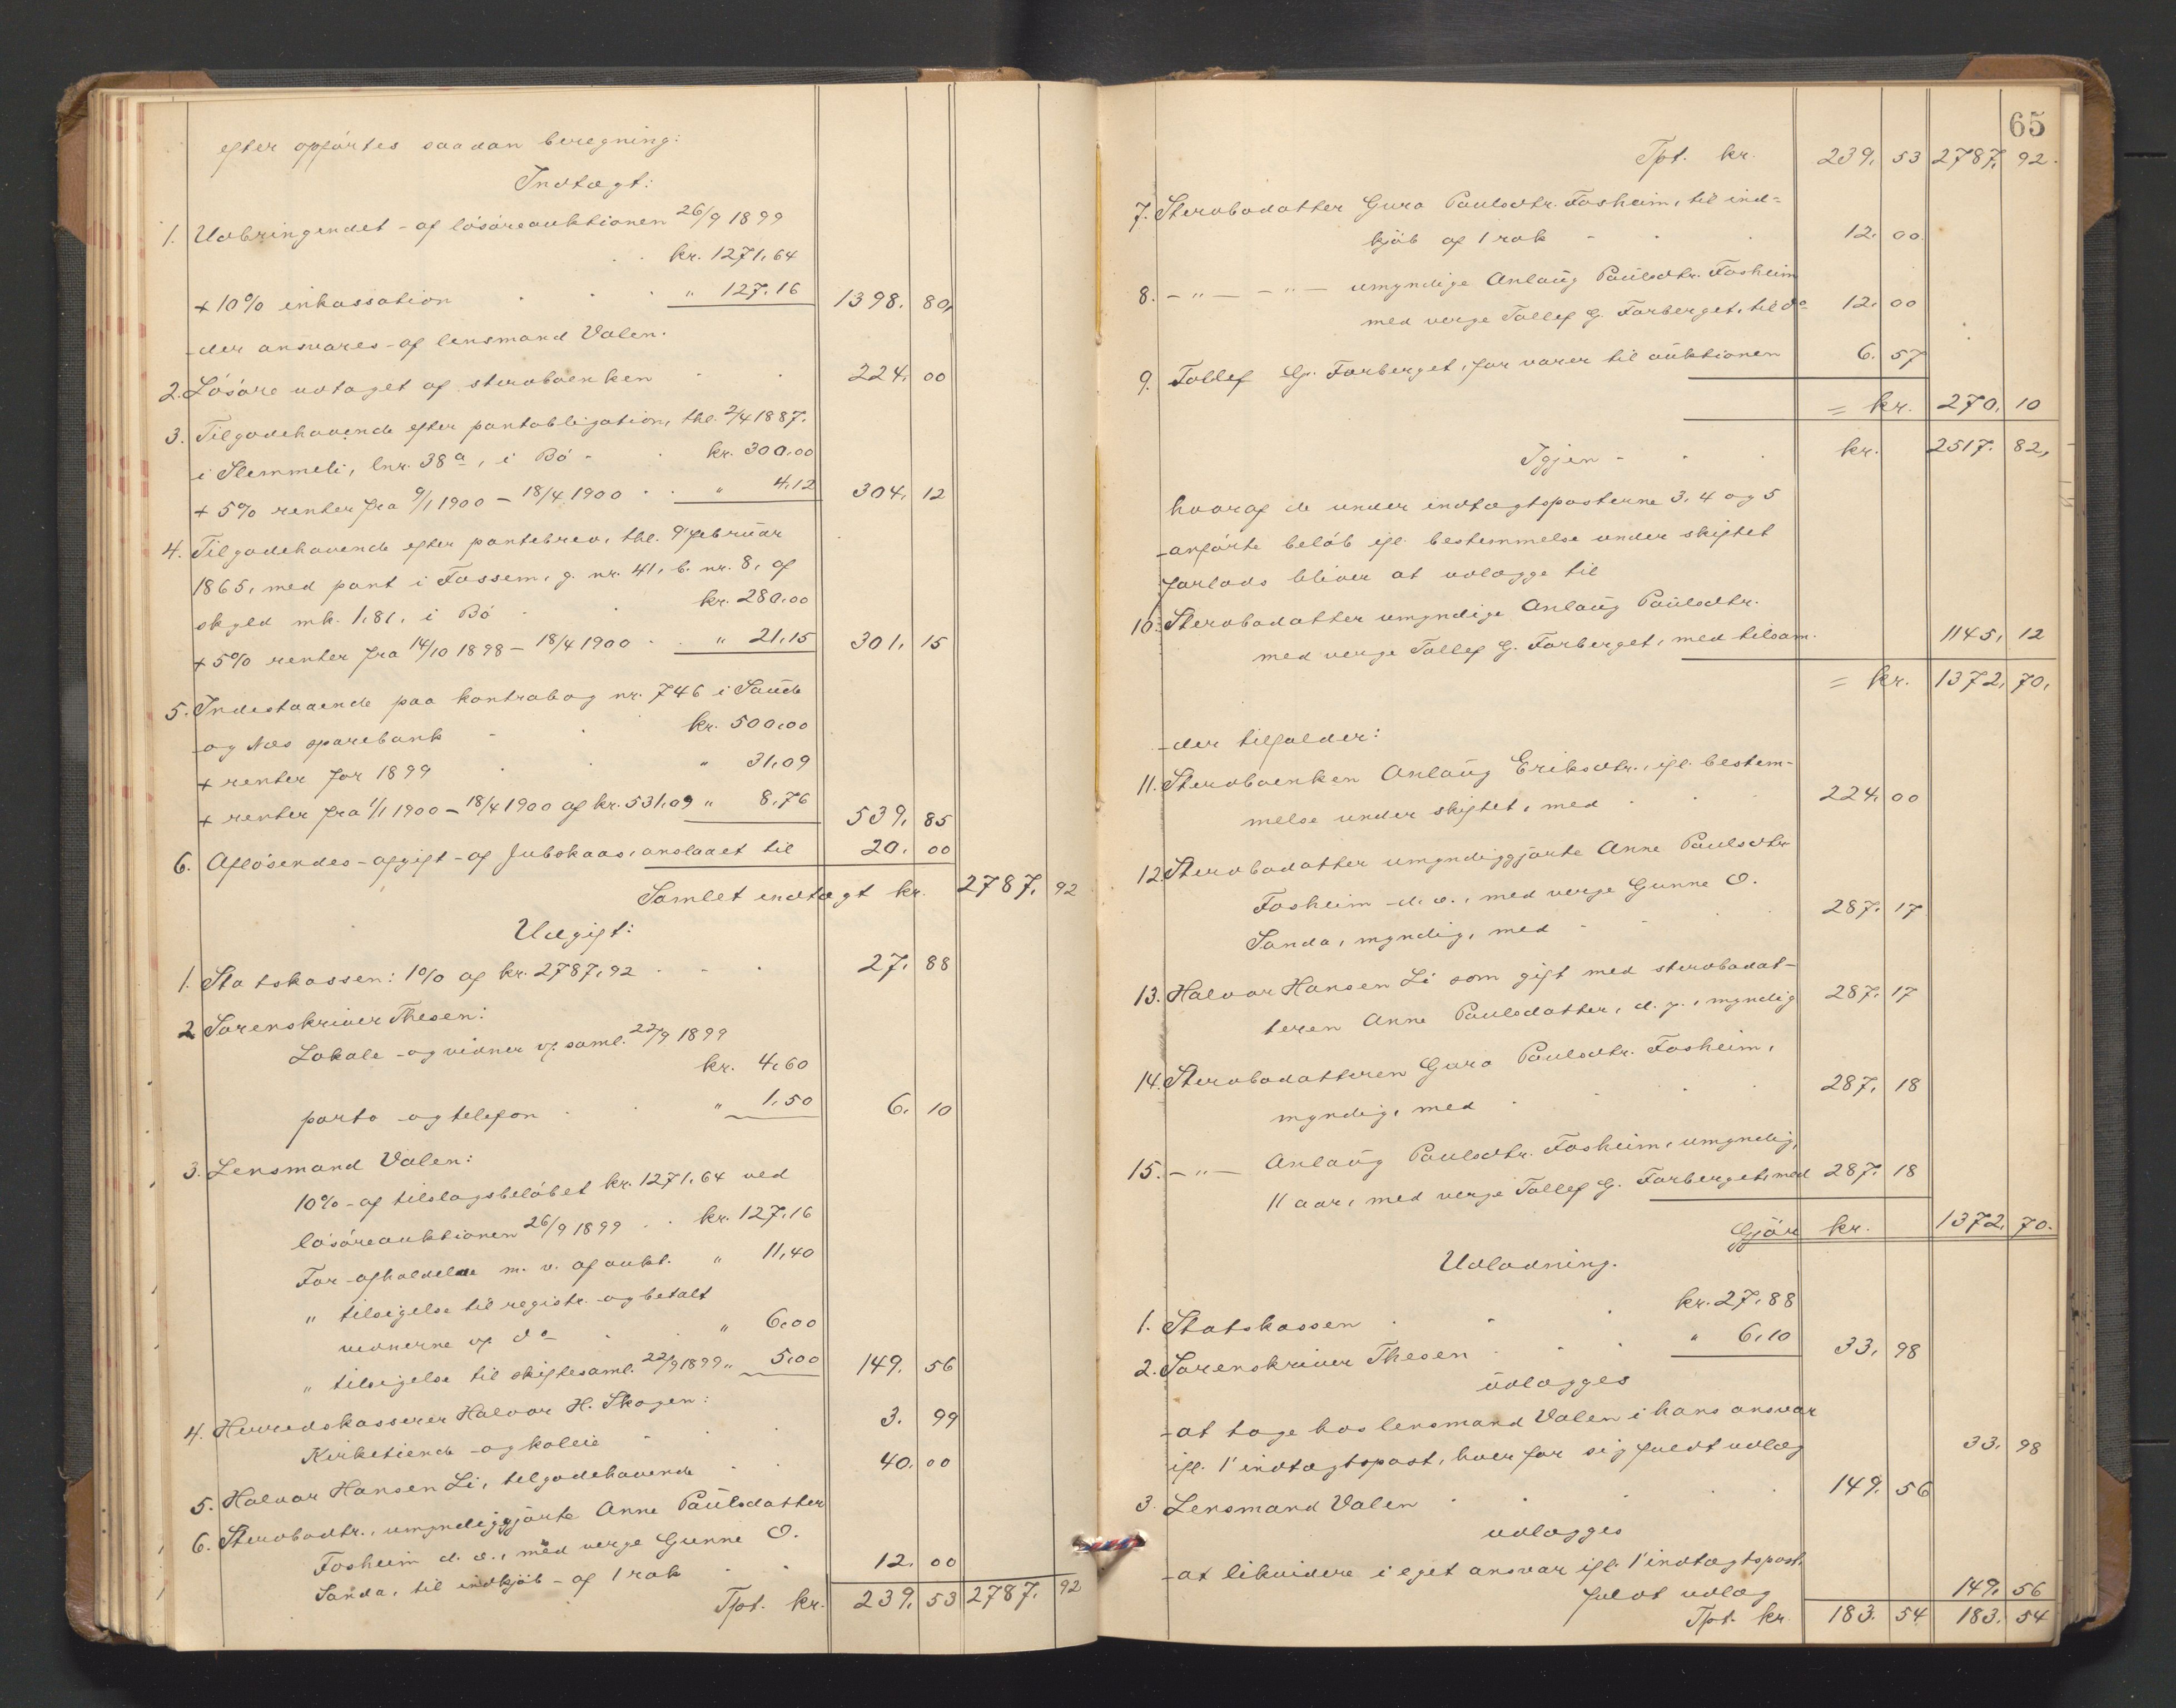 efter opførtes saadan beregning:
Indtægt:
1. Udbringendet af løsøreauktionen 26/9 1899
kr. 1271,64
+ 10% inkassation " 127.16 1398. 80,
der ansvares af lensmand Valen.
2. Løsøre udtaget af sterboenken 224. 00
3. Tilgodehavende efter pantobligation, thl. 2/4 1887.
i Slemmeli, lnr. 38a, i Bø kr. 300.00
+ 5% renter fra 9/1 1900 – 18/4 1900 " 4.12 304. 12
4. Tilgodehavende efter pantebrev, thl. 9' februar
1865, med pant i Fossem, g. nr. 41, b. nr. 8, af
skyld mk. 1.81, i Bø kr. 280.00
+ 5% renter fra 14/10 1898 – 18/4 1900 " 21.15 301. 15
5. Indestaaende paa kontrabog nr. 746 i Saude
og Nes sparebank kr. 500.00
+ renter for 1899 " 31.09
+ renter fra 1/1 1900 – 18/4 1900 af kr. 531.09 " 8.76 539. 85
6. Afløsendes afgift af Jubskaas, anslaaet til 20. 00
Samlet indtægt kr. 2787. 92
Udgift:
1. Statskassen: 1% af kr. 2787,92 27. 88
2 Sorenskriver Thesen:
Lokale og vidner v. saml. 22/9 1899
kr. 4.60
porto og telefon " 1.50 6. 10
3. Lensmand Valen:
10% af tilslagsbeløbet kr. 1271.64 ved
løsøreauktionen 26/9 1899 kr. 127.16
For afholdelse m. v. af aukt. " 11.40
" tilsigelse til registr. og betalt
vidnerne v. do " 6.00
" tilsigelse til skiftesaml. 22/9 1899 " 5.00 149. 56
4. Herredskasserer Halvor H. Skogen:
Kirketiende og koleie 3. 99
5. Halvor Hansen Li, tilgodehavende 40. 00
6. Sterbodtr., umyndiggjorte Anne Paulsdatter
Fosheim d. æ., med verge Gunne O.
Sanda, til indkjøb af 1 rok 12. 00
Tpt. kr. 239. 53 2787. 92
65
Tpt. kr. 239. 53 2787. 92.
7. Sterbodatter Guro Paulsdtr. Fosheim, til ind=
kjøb af 1 rok 12. 00.
8. – " – – " – umyndige Anlaug Paulsdtr. Fosheim
med verge Tollef G. Forberget, til do 12. 00
9. Tollef G. Forberget, for varer til auktionen 6. 57
= kr. 270. 10
Igjen kr. 2517. 82,
hvoraf de under indtægtsposterne 3, 4 og 5
anførte beløb ifl. bestemmelse under skiftet
forlods bliver at udlægge til
10. Sterbodatter umyndige Anlaug Paulsdtr.
med verge Tollef G. Forberget, med tilsam. 1145, 12
= kr. 1372, 70,
der tilfalder:
11. Sterboenken Anlaug Eriksdtr., ifl. bestem-
melse under skiftet, med 224. 00
12 Sterbodatter umyndiggjorte Anne Paulsdtr.
Fosheim d. æ., med verge Gunne O.
Sanda, myndig, med 287. 17
13. Halvor Hansen Li som gift med sterbodat-
teren Anne Paulsdatter, d. y., myndig 287. 17
14. Sterbodatteren Guro Paulsdtr. Fosheim,
myndig, med 287. 18
15. – " – Anlaug Paulsdtr. Fosheim, umyndig,
11 aar, med verge Tollef G. Forberget, med 287. 18
Gjør kr. 1372. 70.
Udlodning.
1. Statskassen kr. 27.88
2. Sorenskriver Thesen " 6.10 33. 98
udlægges
at tage hos lensmand Valen i hans ansvar
ifl. 1' indtægtspost, hver for sig fuldt udlæg 33. 98
3. Lensmand Valen 149. 56
udlægges
at likvidere i eget ansvar ifl. 1' indtægtspost,
fuldt udlæg 149. 56
Tpt. kr. 183. 54 183. 54